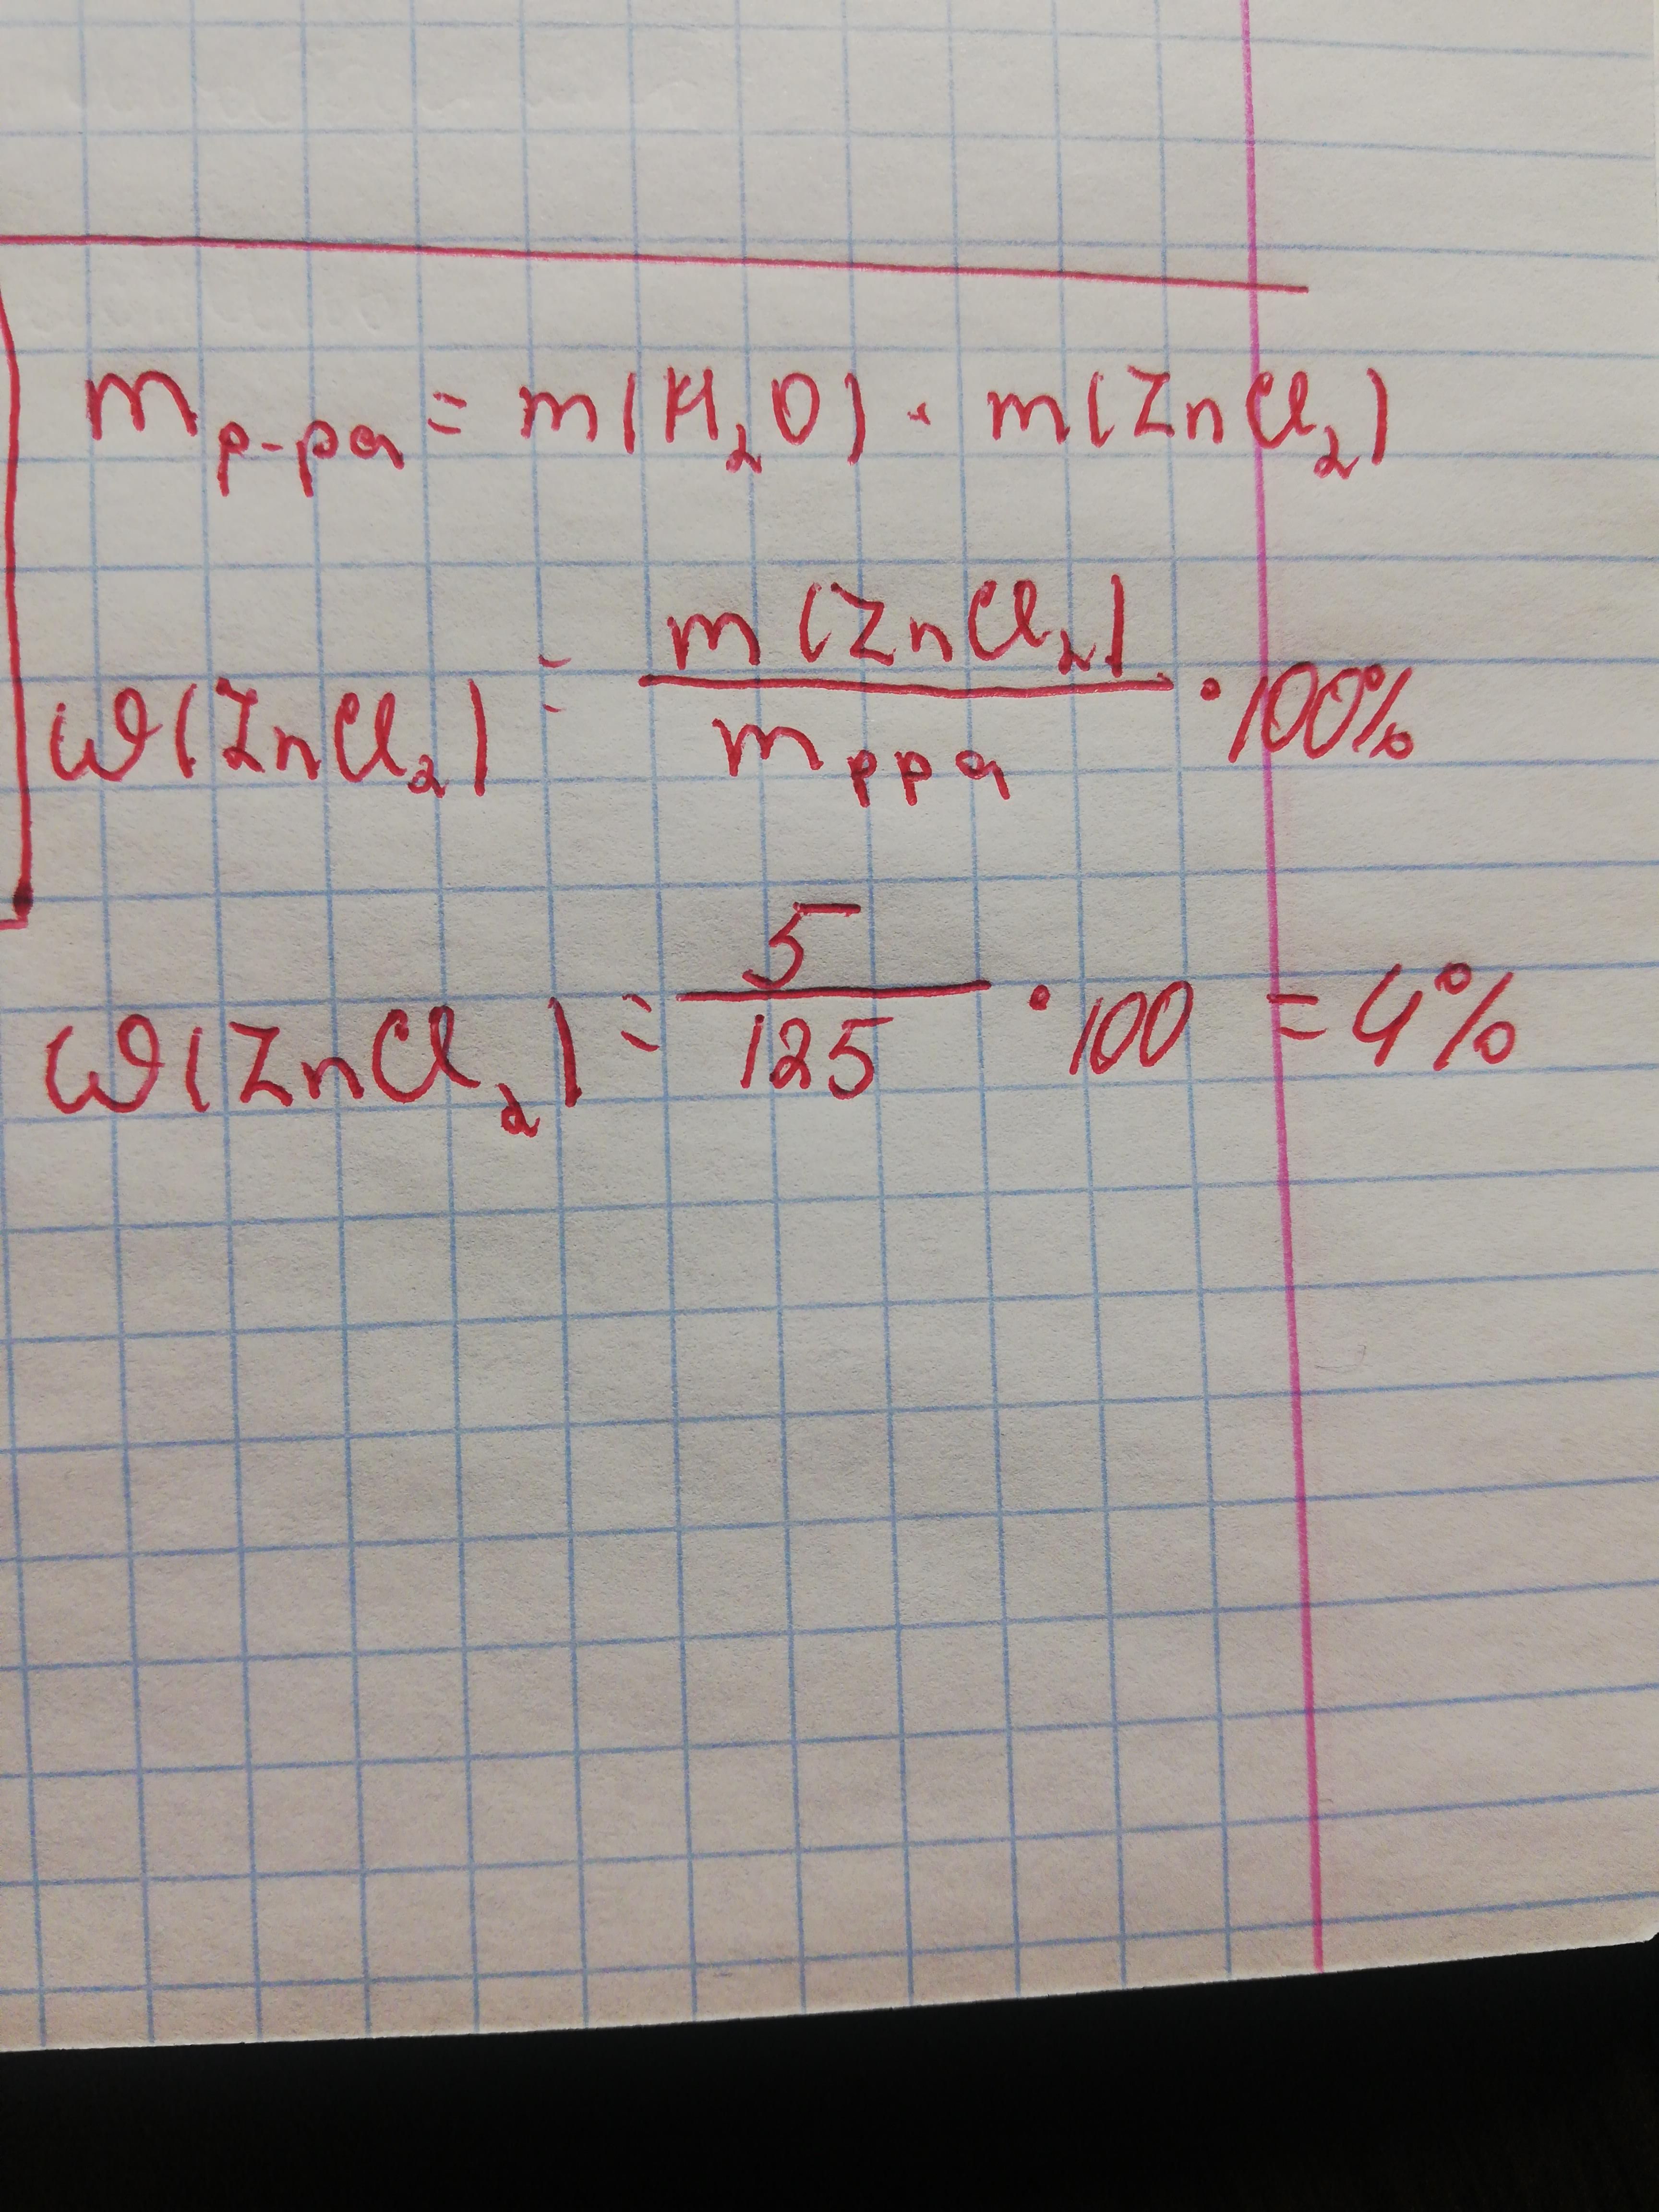 m р-ра = m(H₂O) · m(ZnCl₂)
ω(ZnCl₂) = m(ZnCl₂) / m р ра · 100%
ω(ZnCl₂) = 5 / 125 · 100 = 4%